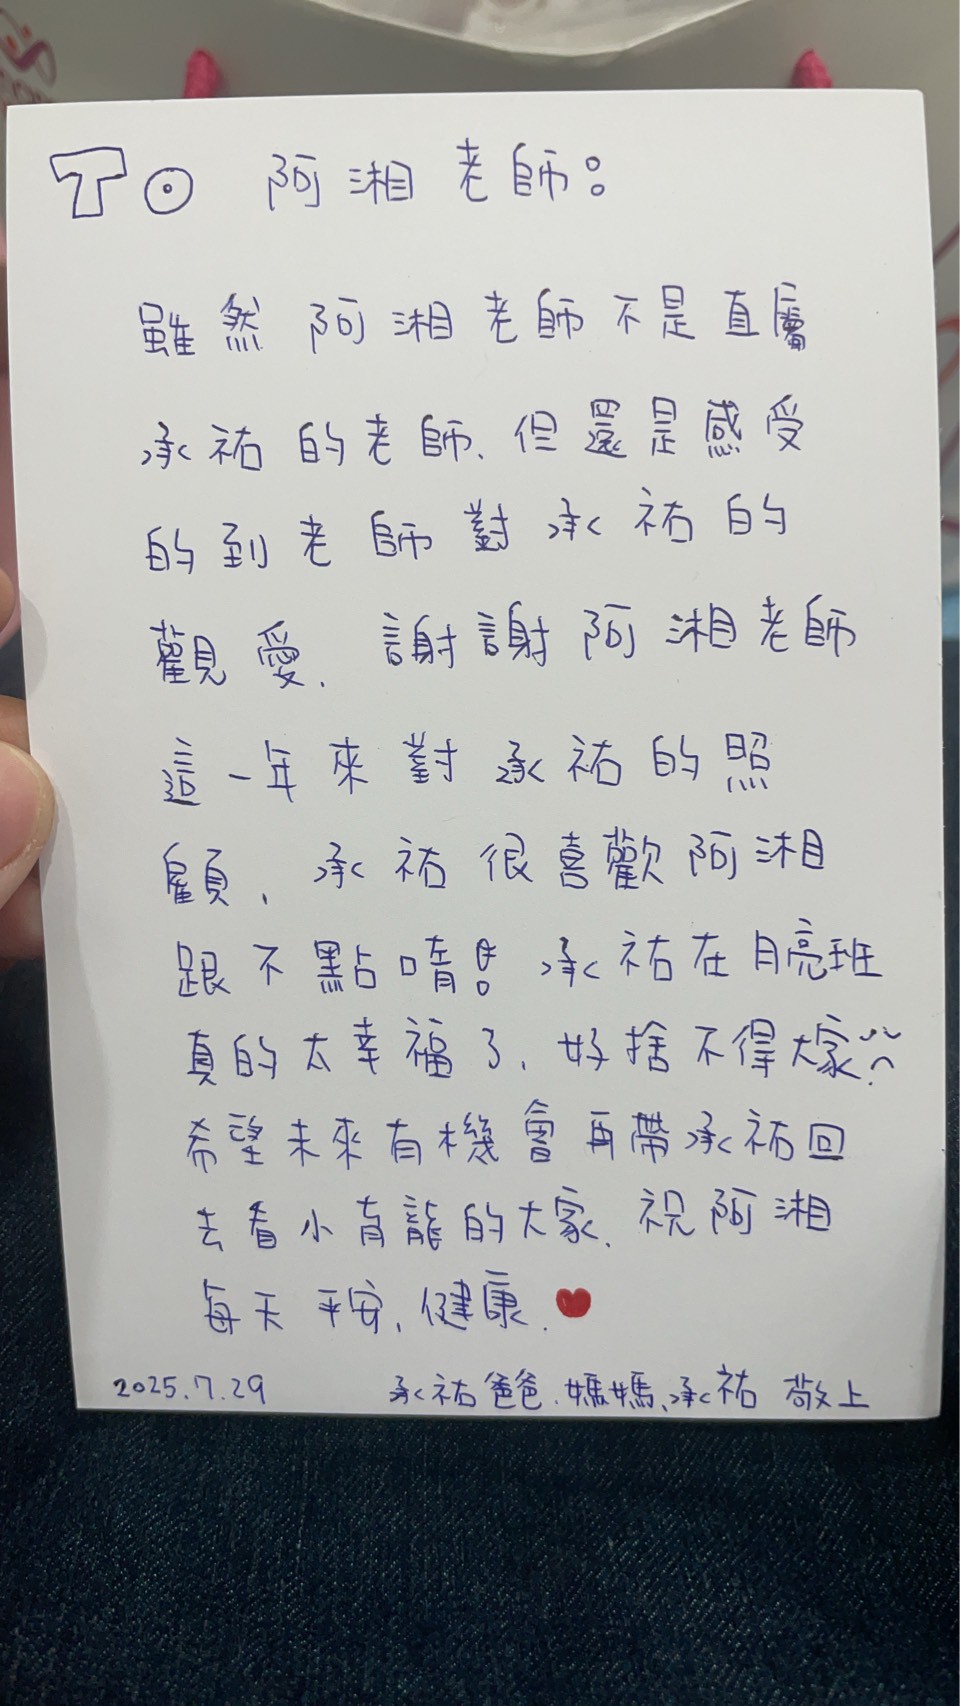 To 阿湘老師：
雖然阿湘老師不是直屬
承祐的老師、但還是感受
的到老師對承祐的
觀愛、謝謝阿湘老師
這一年來對承祐的照
顧、承祐很喜歡阿湘
跟不點唷！承祐在月亮班
真的太幸福了、好捨不得大家
希望未來有機會再帶承祐回
去看小青龍的大家、祝阿湘
每天平安、健康、❤
2025.7.29 承祐爸爸、媽媽、承祐 敬上